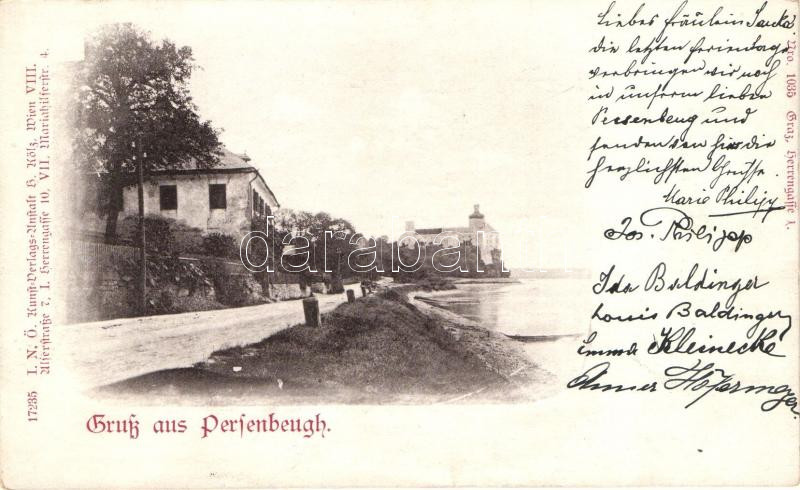 Liebes Fräulein
die letzten Ferientage
verbringen wir noch
in unserm lieben
Persenbeug und
senden von hier die
herzlichsten Grüße.
Marie Philipp
Jos. Philipp
Ida Baldinger
Louis Baldinger
Emma Kleinecke
Hofermeyer
Gruß aus Persenbeugh.
17235 I. N. Ö. Kunst-Verlags-Anstalt B. Kölz, Wien VIII.
Alserstraße 7, I. Herrengasse 10, VII. Mariahilferstr. 4.
Nro. 1035 Graz, Herrengasse 7.
darabanth